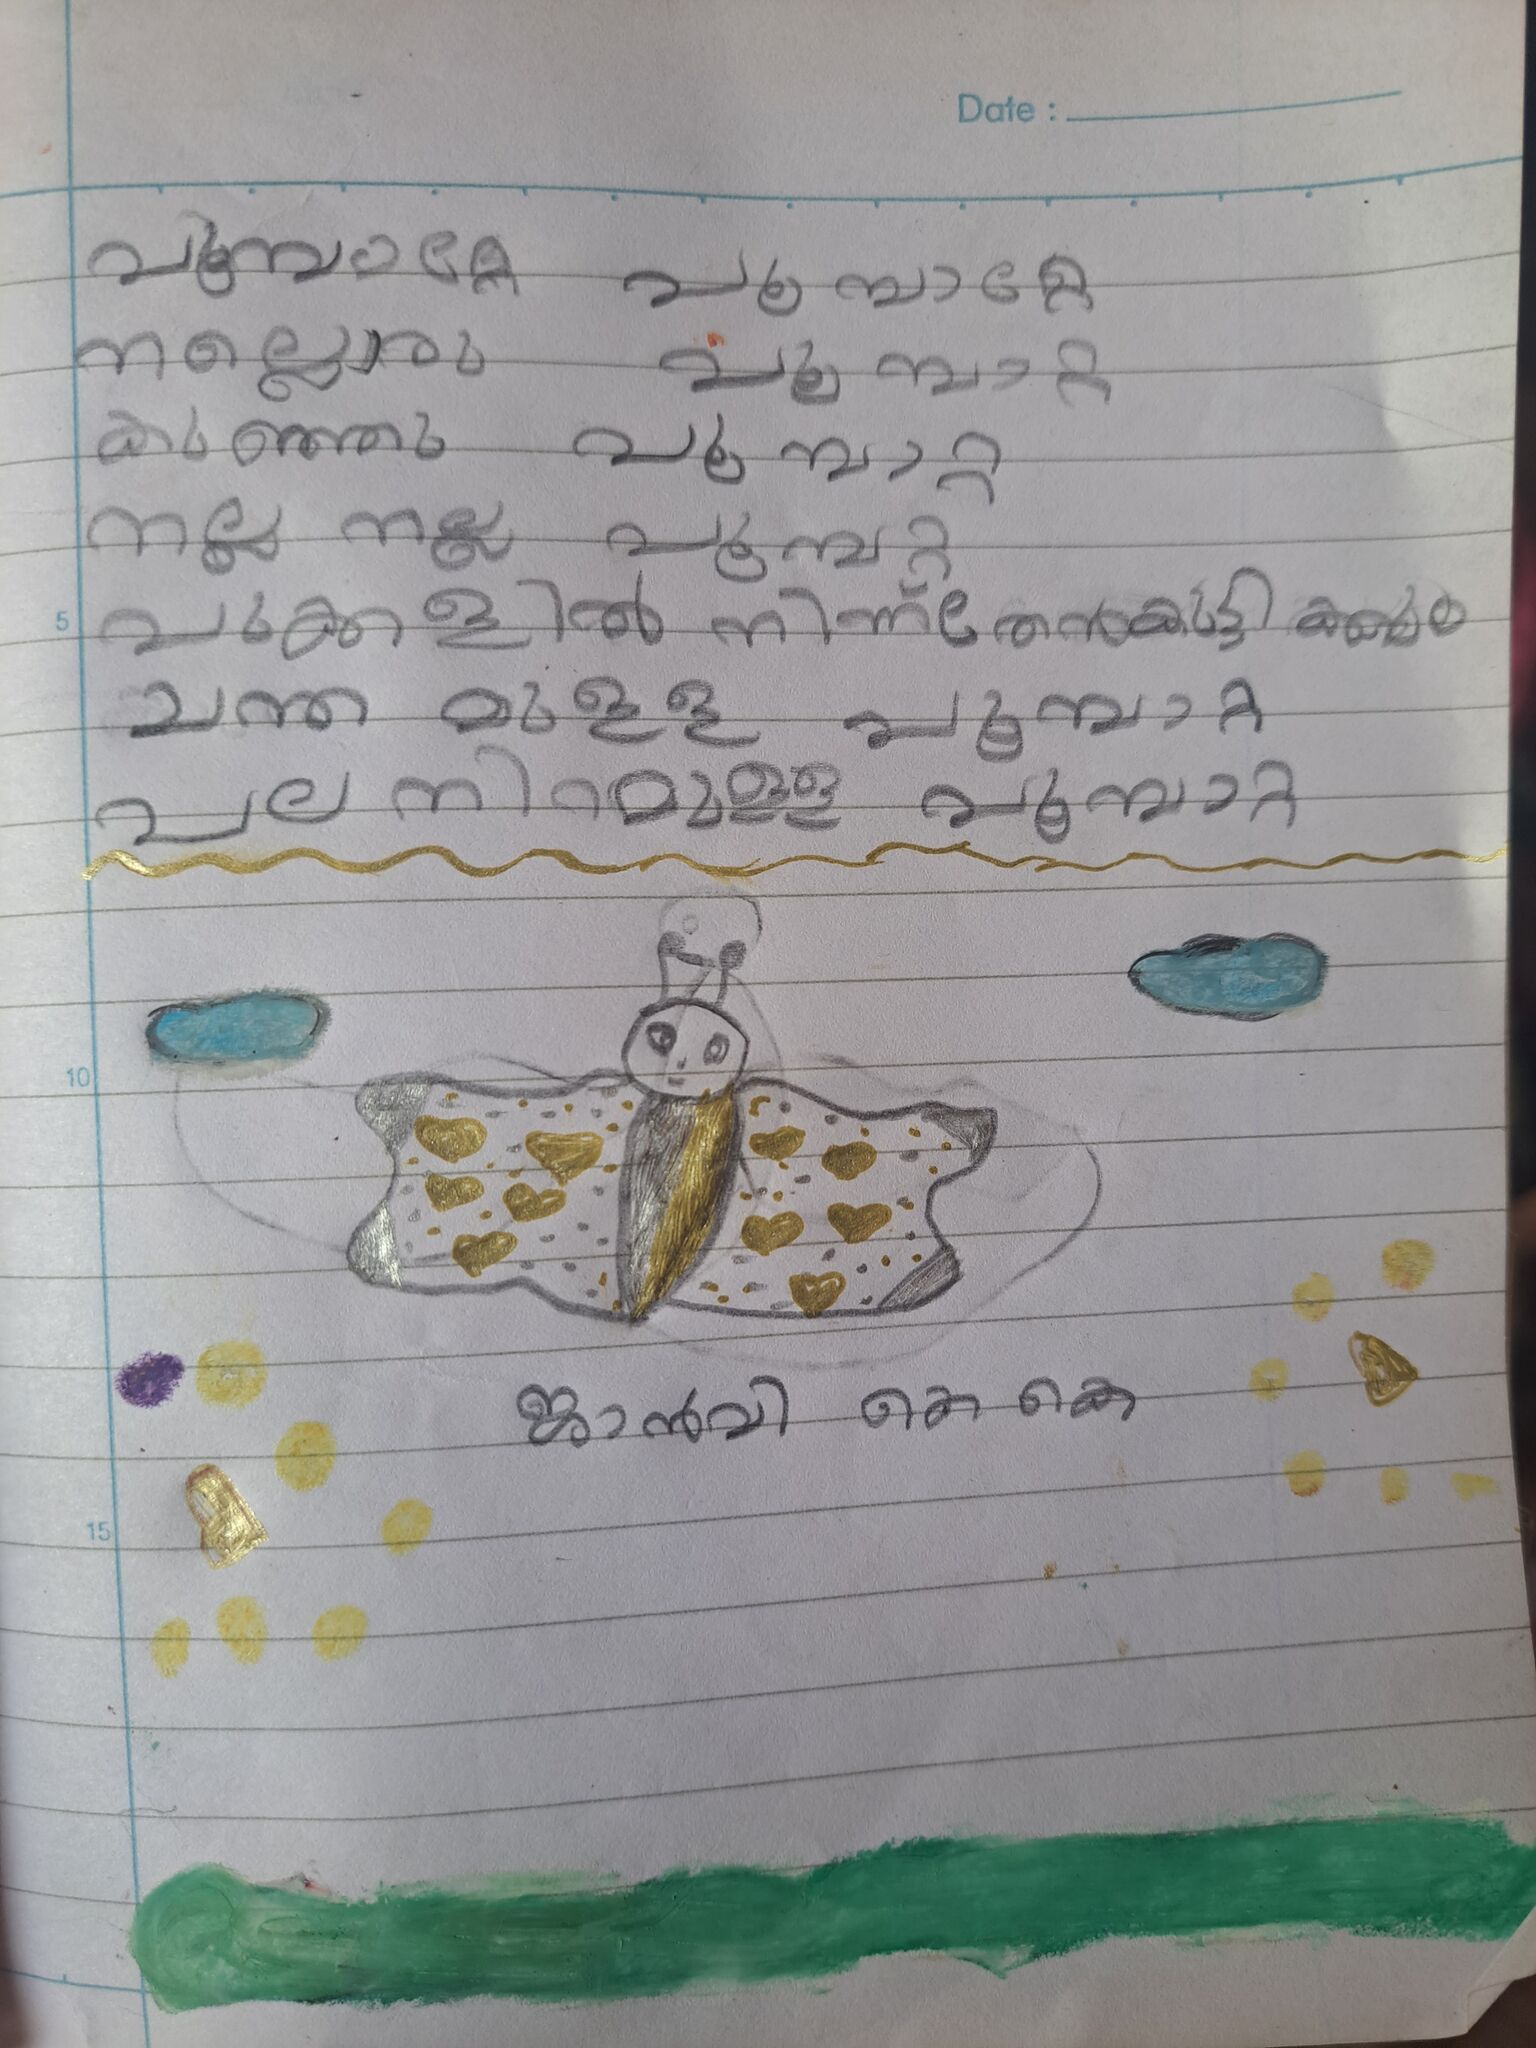 Date :
പൂമ്പാറ്റേ പൂമ്പാറ്റേ
നല്ലൊരു പൂമ്പാറ്റ
കുഞ്ഞു പൂമ്പാറ്റ
നല്ല നല്ല പൂമ്പറ്റ
5 പുക്കളിൽ നിന്ന് തേൻകുട്ടി
ചന്ത മുള്ള പൂമ്പാറ്റ
പല നിറമുള്ള പൂമ്പാറ്റ
10
ജാൻവി കെ കെ
15